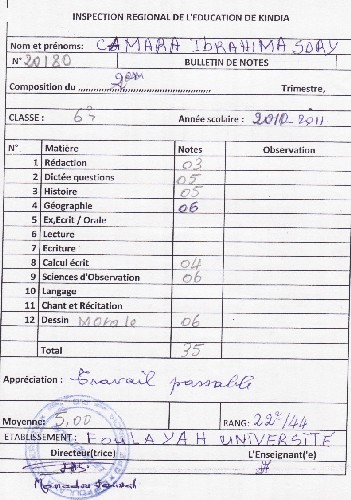 INSPECTION REGIONAL DE L'EDUCATION DE KINDIA
Nom et prénoms: CAMARA IBRAHIMA SORY
N° 20180 BULLETIN DE NOTES
Composition du 2em Trimestre,
CLASSE : 6è Année scolaire : 2010-2011
N° Matière Notes Observation
1 Rédaction 03
2 Dictée questions 05
3 Histoire 05
4 Géographie 06
5 Ex,Ecrit / Orale
6 Lecture
7 Ecriture
8 Calcul écrit 04
9 Sciences d'Observation 06
10 Langage
11 Chant et Récitation
12 Dessin Morale 06
Total 35
Appréciation : travail passable
Moyenne: 5,00 RANG: 22e/44
ETABLISSEMENT: FOULAYAH UNIVERSITÉ
Directeur(trice) L'Enseignant('e)